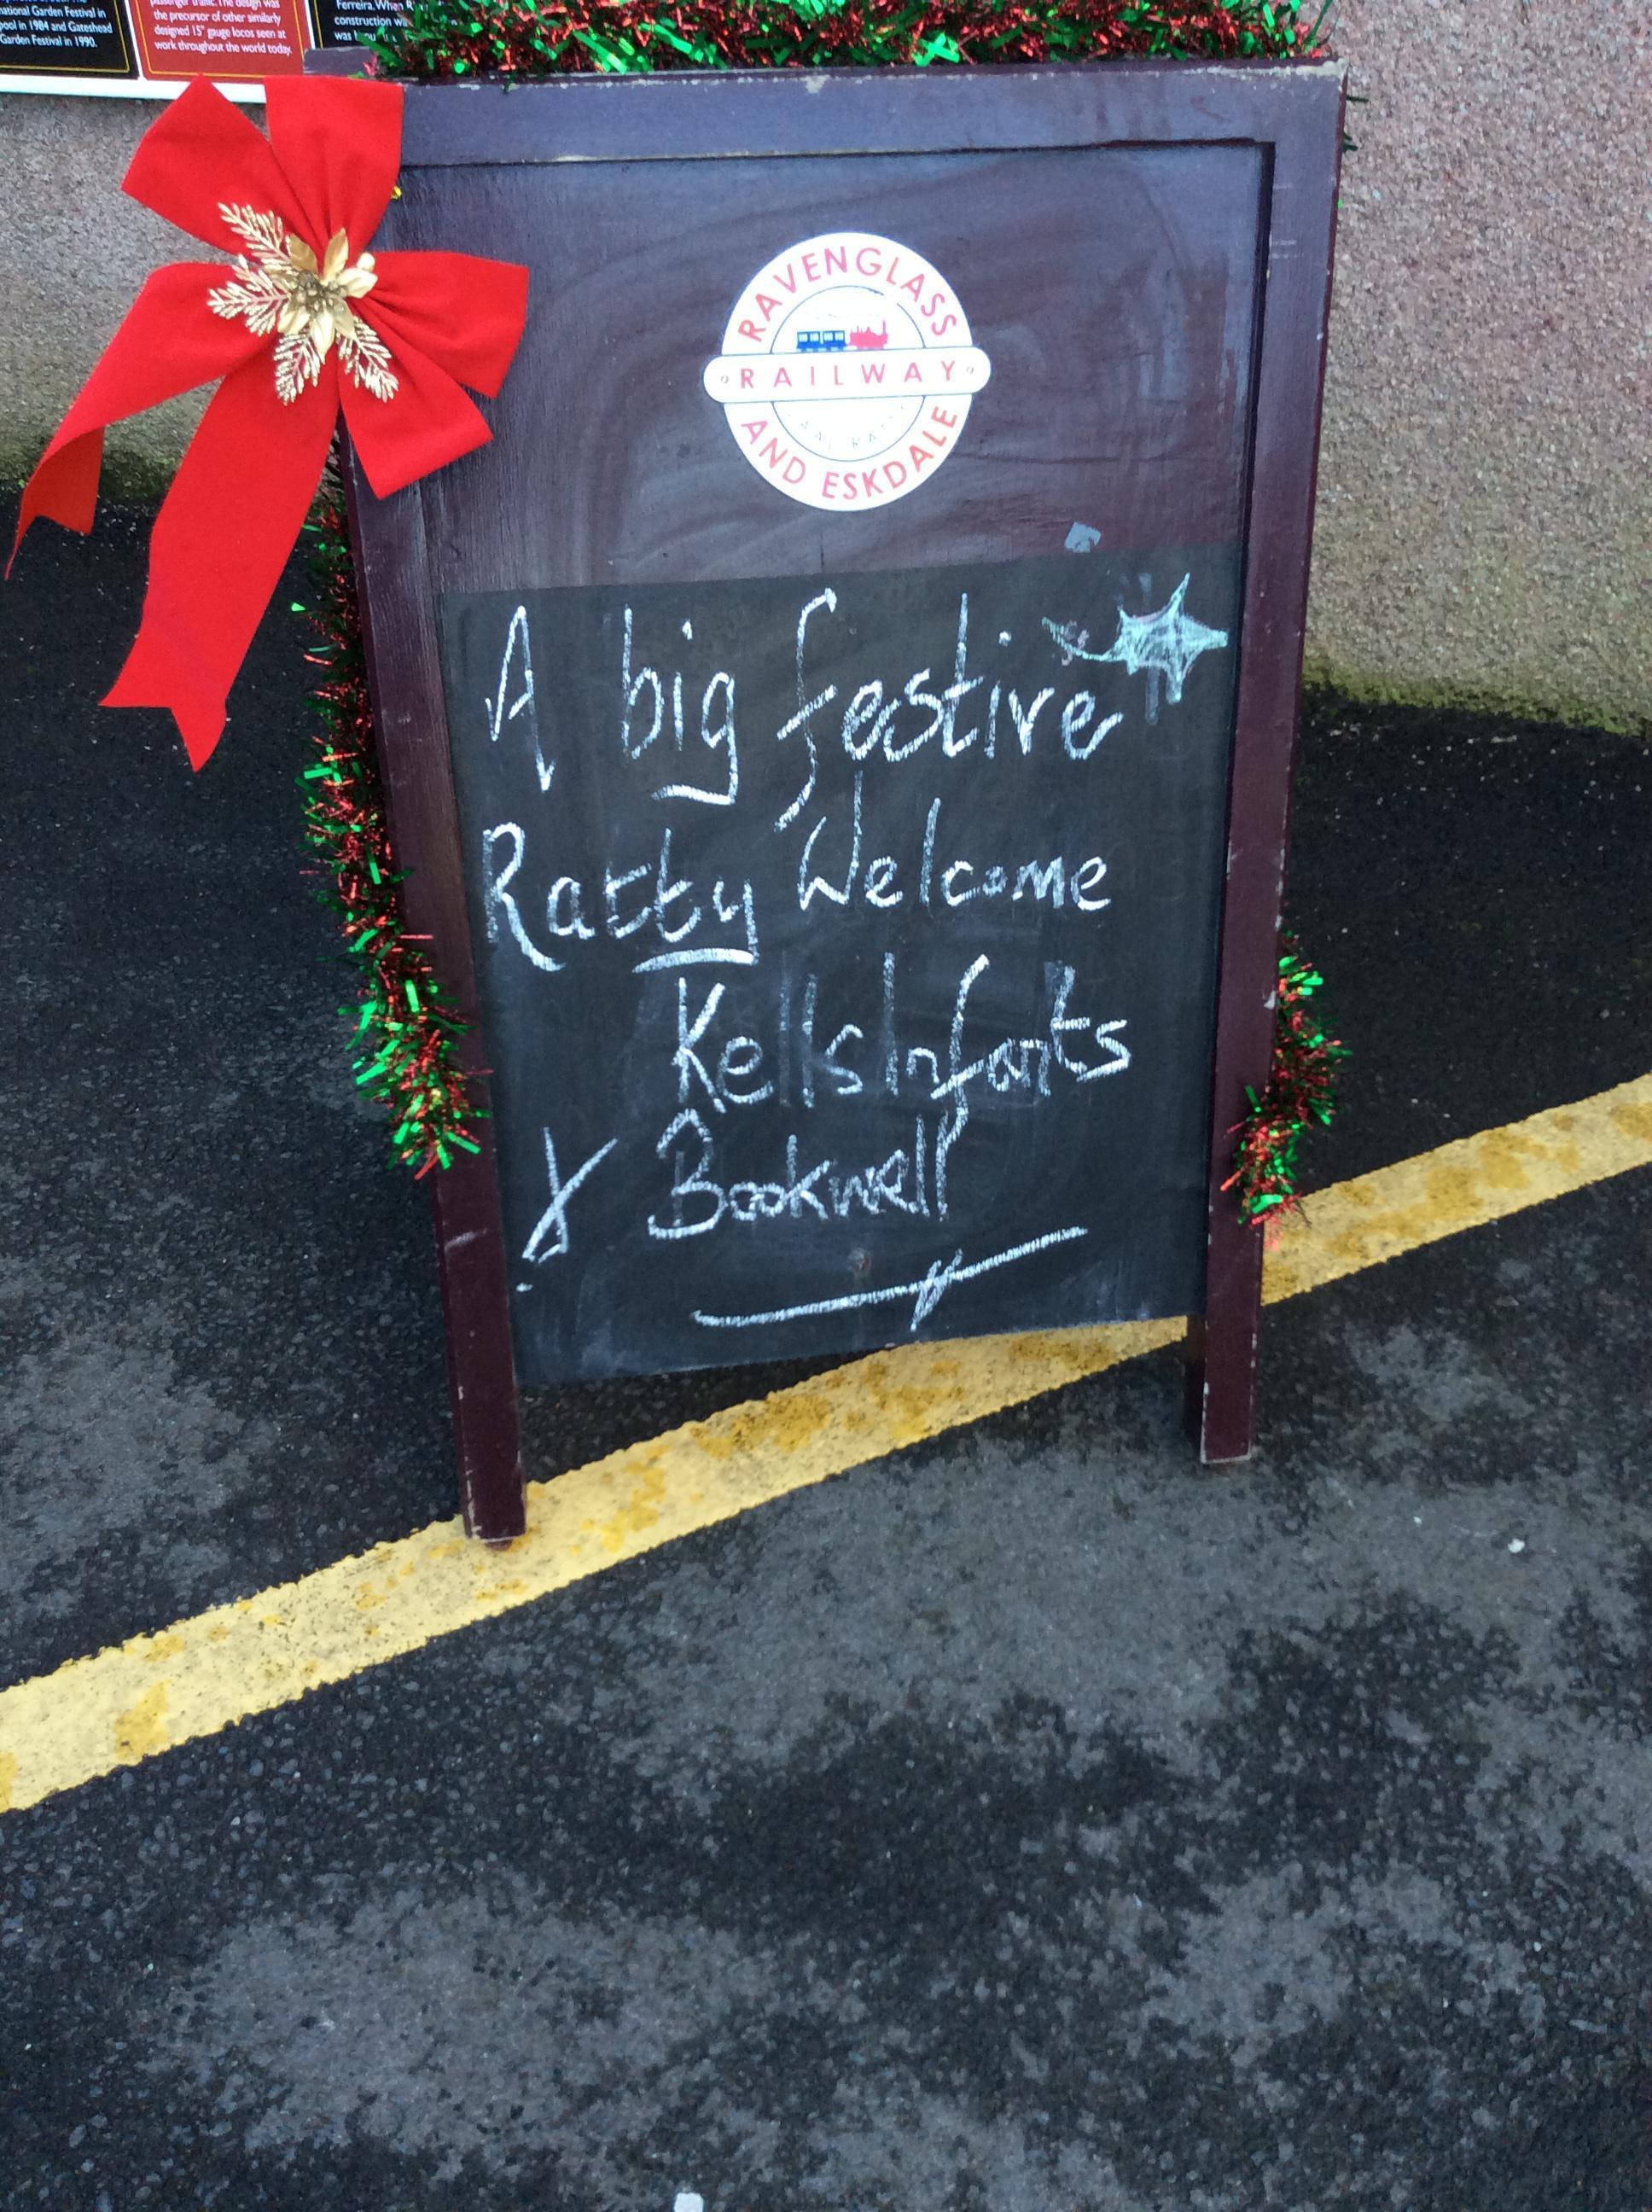 national Garden Festival in
pool in 1984 and Gateshead
Garden Festival in 1990.
passenger traffic. The design was
the precursor of other similarly
designed 15" gauge locos seen at
work throughout the world today.
Ferreira. When
construction
was
RAVENGLASS
RAILWAY
AND ESKDALE
A big festive
Ratty Welcome
Kells Infants
& Bookwell